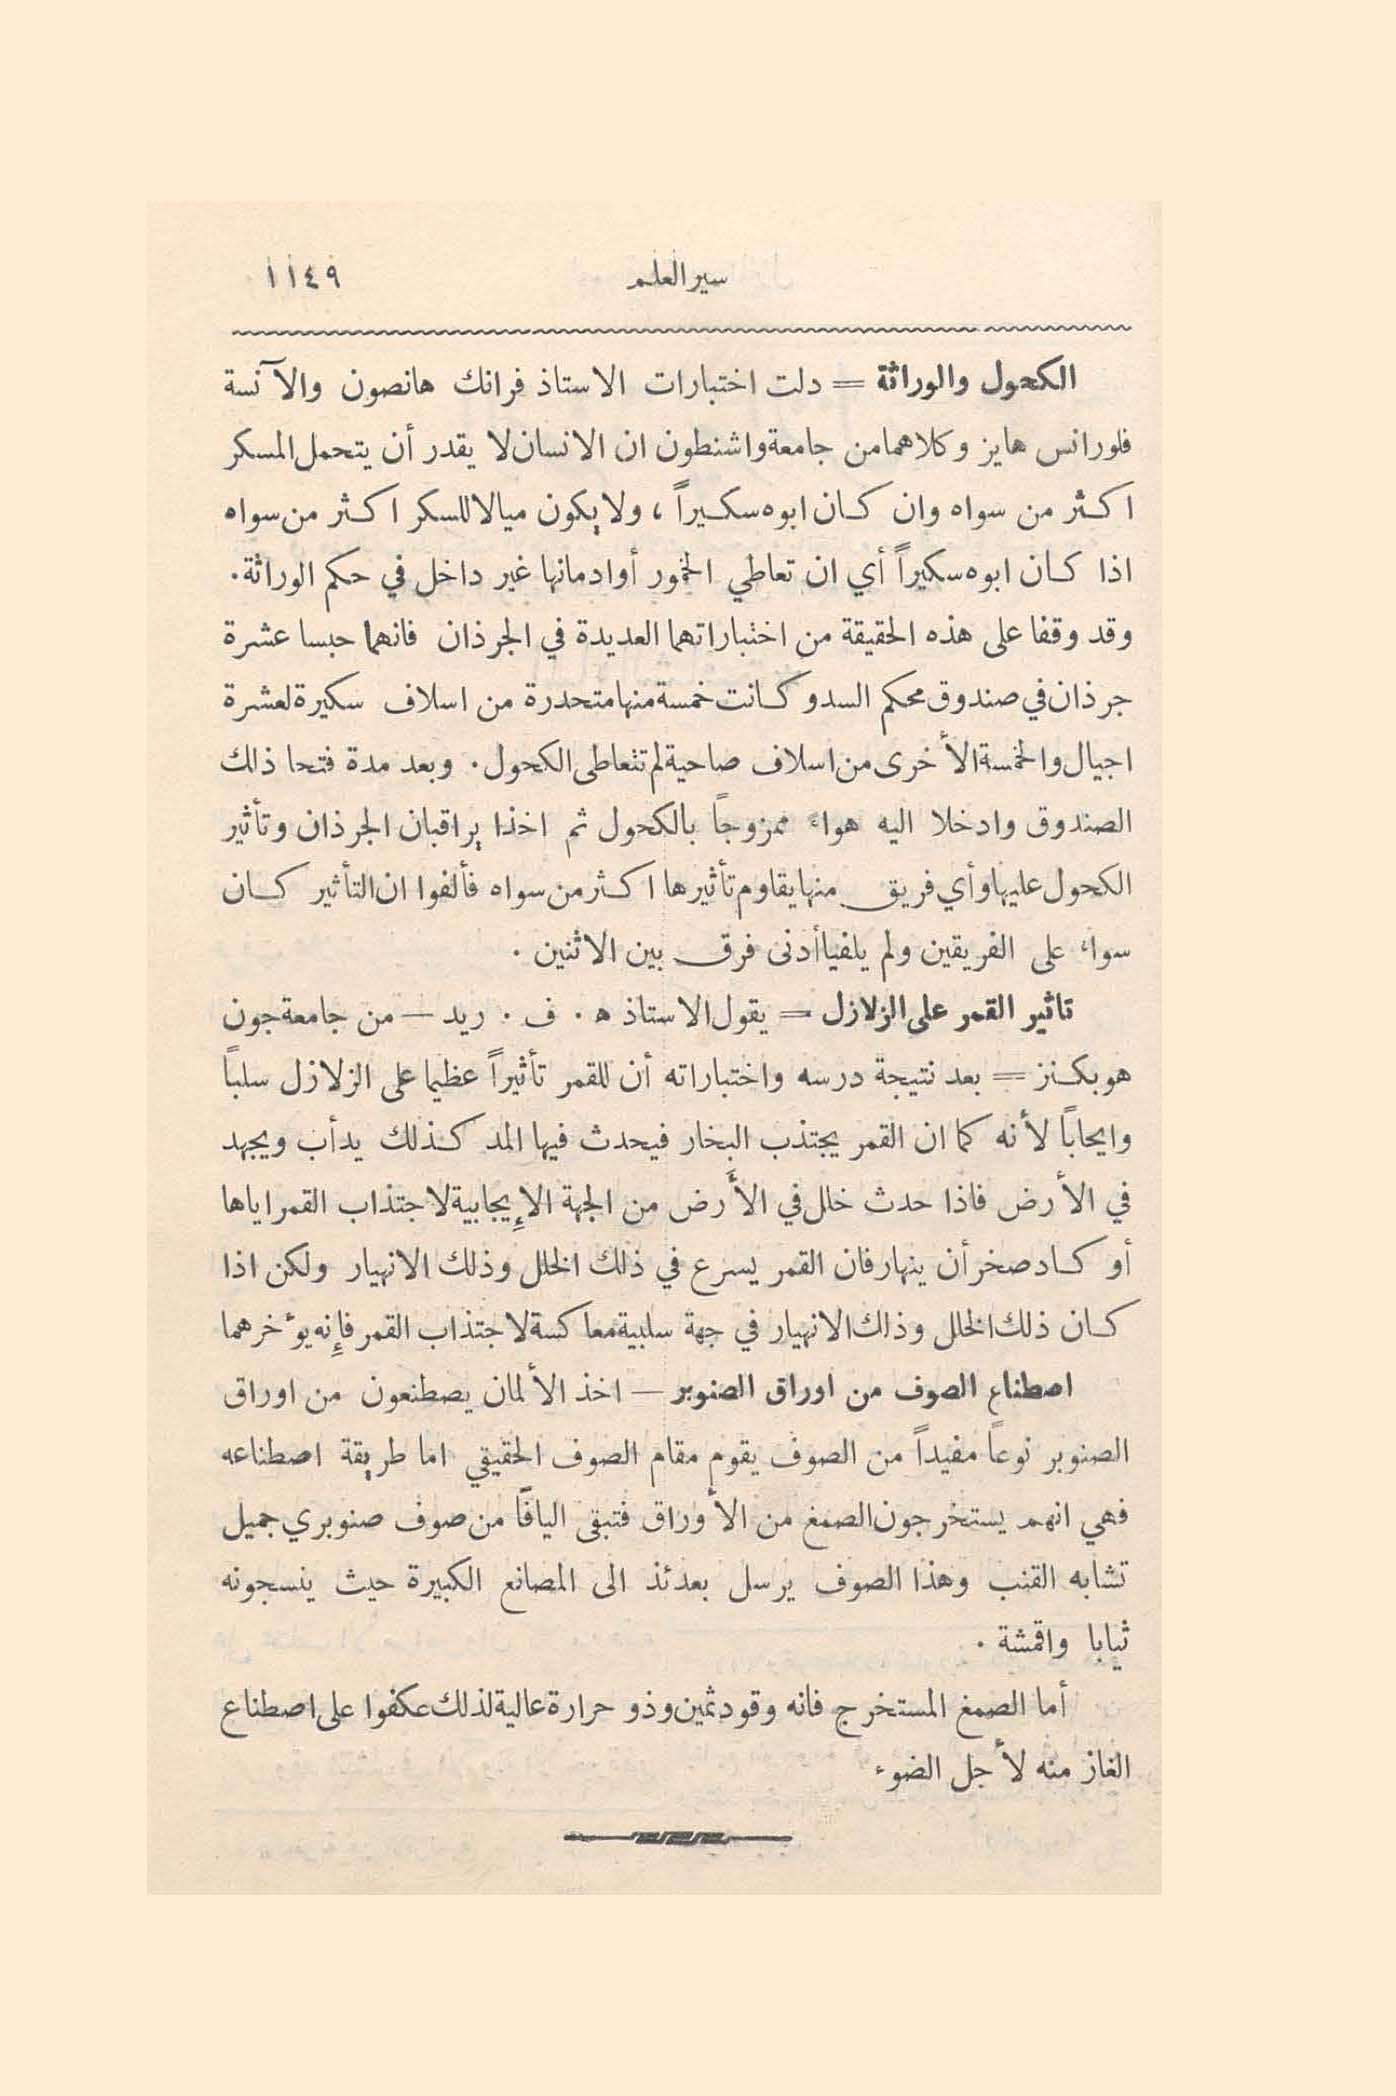 سير العلم ١١٤٩
الكحول والوراثة = دلت اختبارات الاستاذ فرانك هانصون والآنسة
فلورانس هايز وكلاهما من جامعة واشنطون ان الانسان لا يقدر أن يتحمل المسكر
اكثر من سواه وان كان ابوه سكيراً ، ولا يكون ميالا للسكر اكثر من سواه
اذا كان ابوه سكيراً أي ان تعاطي الخمور أو ادمانها غير داخل في حكم الوراثة .
وقد وقفا على هذه الحقيقة من اختباراتهما العديدة في الجرذان فانهما حبسا عشرة
جرذان في صندوق محكم السد وكانت خمسة منها متحدرة من اسلاف سكيرة لعشرة
اجيال والخمسة الأخرى من اسلاف صاحية لم تتعاطى الكحول . وبعد مدة فتحا ذلك
الصندوق وادخلا اليه هواء ممزوجاً بالكحول ثم اخذا يراقبان الجرذان وتأثير
الكحول عليها وأي فريق منها يقاوم تأثيرها اكثر من سواه فألفوا ان التأثير كان
سواء على الفريقين ولم يلفيا أدنى فرق بين الاثنين .
تاثير القمر على الزلازل = يقول الاستاذ ه . ف . ريد — من جامعة جون
هوبكنز = بعد نتيجة درسه واختباراته أن للقمر تأثيراً عظيما على الزلازل سلباً
وايحاباً لأنه كما ان القمر يجتذب البخار فيحدث فيها المد كذلك يدأب ويجهد
في الأرض فاذا حدث خلل في الأَرض من الجهة الإيجابية لاجتذاب القمر اياها
أو كاد صخر أن ينهار فان القمر يسرع في ذلك الخلل وذلك الانهيار ولكن اذا
كان ذلك الخلل وذلك الانهيار في جهة سلبية معاكسة لاجتذاب القمر فإنه يؤخرهما
اصطناع الصوف من اوراق الصنوبر — اخذ الألمان يصطنعون من اوراق
الصنوبر نوعاً مفيداً من الصوف يقوم مقام الصوف الحقيقي اما طريقة اصطناعه
فهي انهم يستخرجون الصمغ من الأوراق فتبقى اليافاً من صوف صنوبري جميل
تشابه القنب وهذا الصوف يرسل بعدئذ الى المصانع الكبيرة حيث ينسجونه
ثيابا واقمشة .
أما الصمغ المستخرج فانه وقود ثمين وذو حرارة عالية لذلك عكفوا على اصطناع
الغاز منه لأجل الضوء